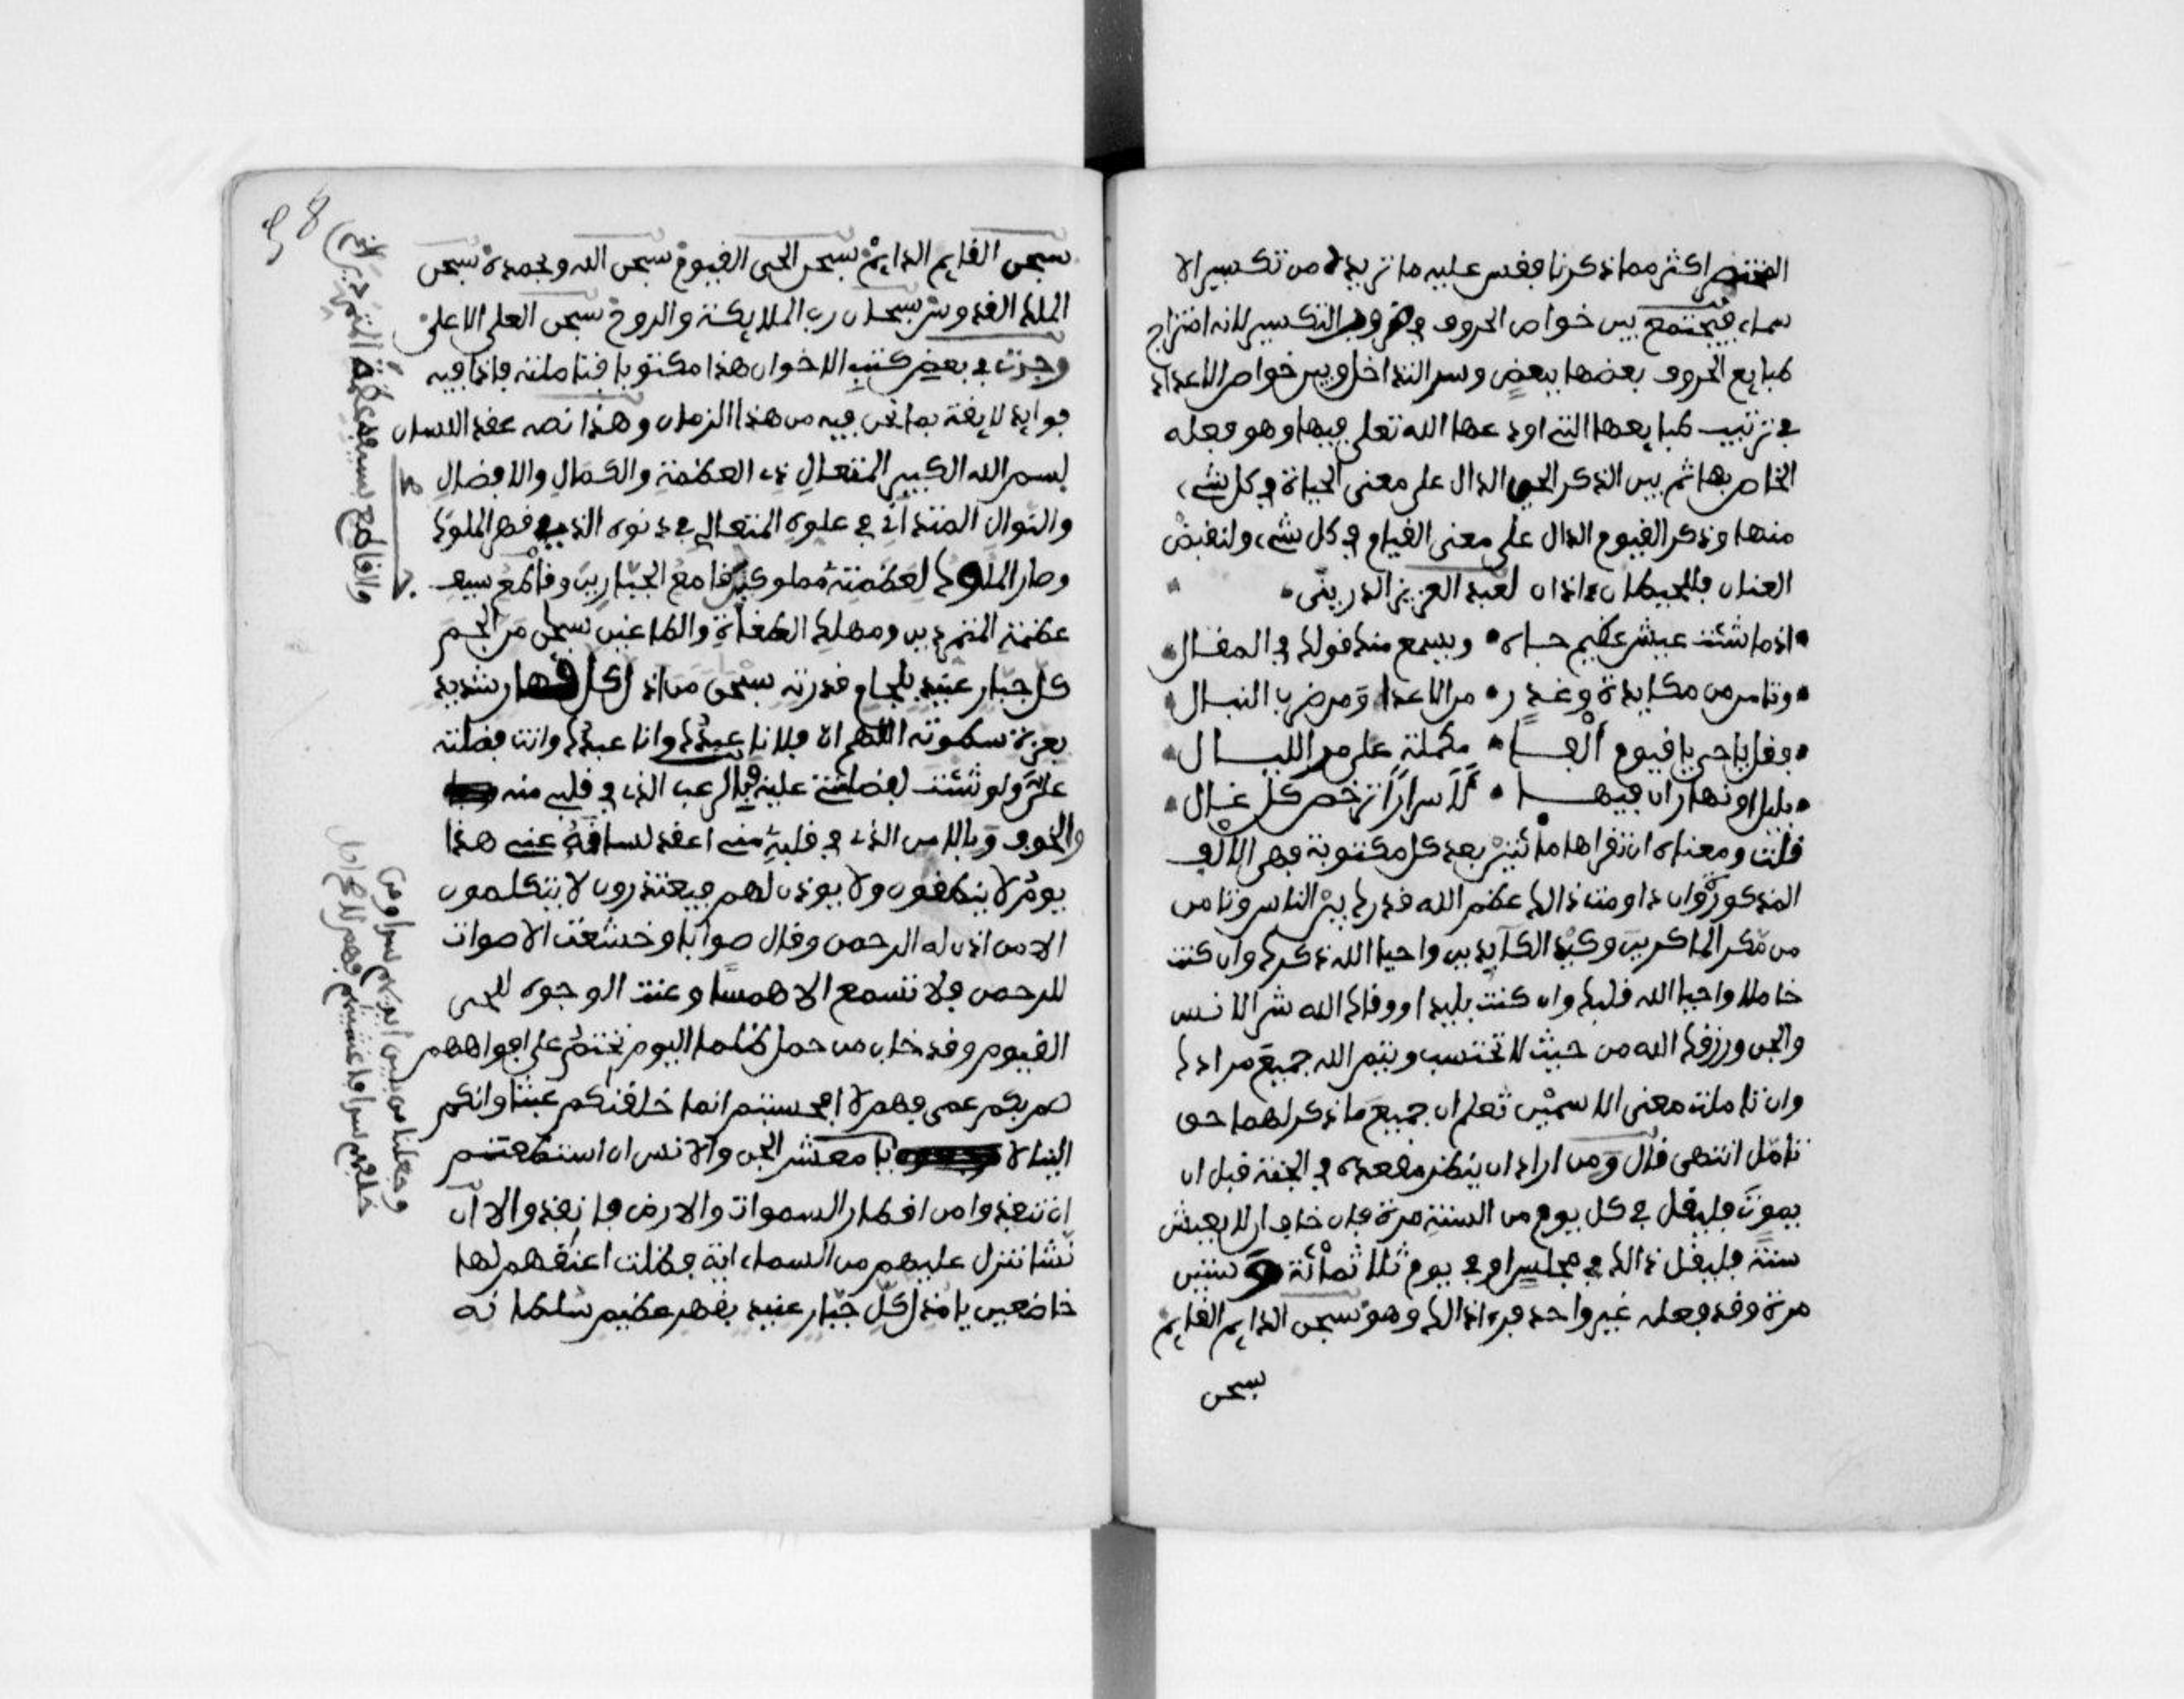 المختصر اكثر مما ذكرنا فقس عليه ما تريده من تكسير الا
سماء فيجتمع بين خواص الحروف في التكسير لانه امتزاج
طبايع الحروف بعضها ببعض وسر التداخل وبين خواص الاعداد
في ترتيب طبايعها التي اودعها الله تعلى فيها وهو فعله
الخاص بها ثم بين الذكر الحي الدال على معنى الحياة في كل شيء
منها وذكر القيوم الدال على معنى القيام في كل شيء ولنقبض
العنان لعبد العزيز الدريني
اذا ما شئت عيش عظيم جاه ويسمع منك قولك في المقال
وتامن من مكايدة وغدر من الاعدا ومن ضرب النبال
وقل يا حي يا قيوم ألفا مكملة على مر الليال
بليل او نهار ان فيها لأسرارا ترخص كل غال
قلت ومعناه ان تقراها مائتين بعد كل مكتوبة فهي الالف
المذكور وان داومت ذالك عظم الله قدرك بين الناس وتامن
من مكر الماكرين وكيد الكايدين واحيا الله ذكرك وان كنت
خاملا واحيا الله قلبك وان كنت بليدا ووقاك الله شر الانس
والجن ورزقك الله من حيث لا تحتسب ويتم الله جميع مرادك
وان تاملت معنى الاسمين تعلم ان جميع ما ذكر لهما حق
تامل انتهى قال ومن اراد ان ينظر مقعده في الجنة قبل ان
يموت فليقل في كل يوم من السنة مرة فان خاف ان لا يعيش
سنة فليقل ذالك في مجلس او في يوم ثلاثمائة وستين
مرة وقد فعله غير واحد فرءا ذالك وهو سبحن الدايم القايم
سبحن
سبحن القايم الدايم سبحن الحي القيوم سبحن الله وبحمده سبحن
الملك القدوس سبحان رب الملايكة والروح سبحن العلي الاعلى
وجدت في بعض كتب الاخوان هذا مكتوبا فتاملته فاذا فيه
فوايد لايقة بما نحن فيه من هذا الزمان وهذا نصه عقد اللسان
بسم الله الكبير المتعال ذي العظمة والكمال والافضال
والنوال المتداني في علوه المتعالي في دنوه الذي قهر الملوك
وصار الملوك لعظمته مملوكين قامع الجبارين وقاطع سيف
عظمة المتمردين ومهلك الطغاة والطاغين سبحن من الجم
كل جبار عنيد بلجام قدرته سبحن من اذل كل قهار شديد
بعزة سطوته اللهم ان فلانا عبدك وانا عبدك وانت فضلته
علي ولو شئت لفضلتني عليه فبالرعب الذي في قلبي منه
والخوف وبالامن الذي في قلبه مني اعقد لسانه عني هذا
يوم لا ينطقون ولا يوذن لهم فيعتذرون لا يتكلمون
الا من اذن له الرحمن وقال صوابا وخشعت الاصوات
للرحمن فلا تسمع الا همسا وعنت الوجوه للحي
القيوم وقد خاب من حمل ظلما اليوم نختم على افواههم
صم بكم عمي فهم لا افحسبتم انما خلقنكم عبثا وانكم
الينا لا يا معشر الجن والانس ان استطعتم
ان تنفذوا من اقطار السموات والارض فانفذوا الا ان
نشا ننزل عليهم من السماء اية فظلت اعنقهم لها
خاضعين يا مذل كل جبار عنيد بقهر عظيم سلطانه
والقاطع بسيف عظمة المتمردين
وجعلنا من بين ايديهم سدا ومن
خلفهم سدا فاغشينهم فهم لا